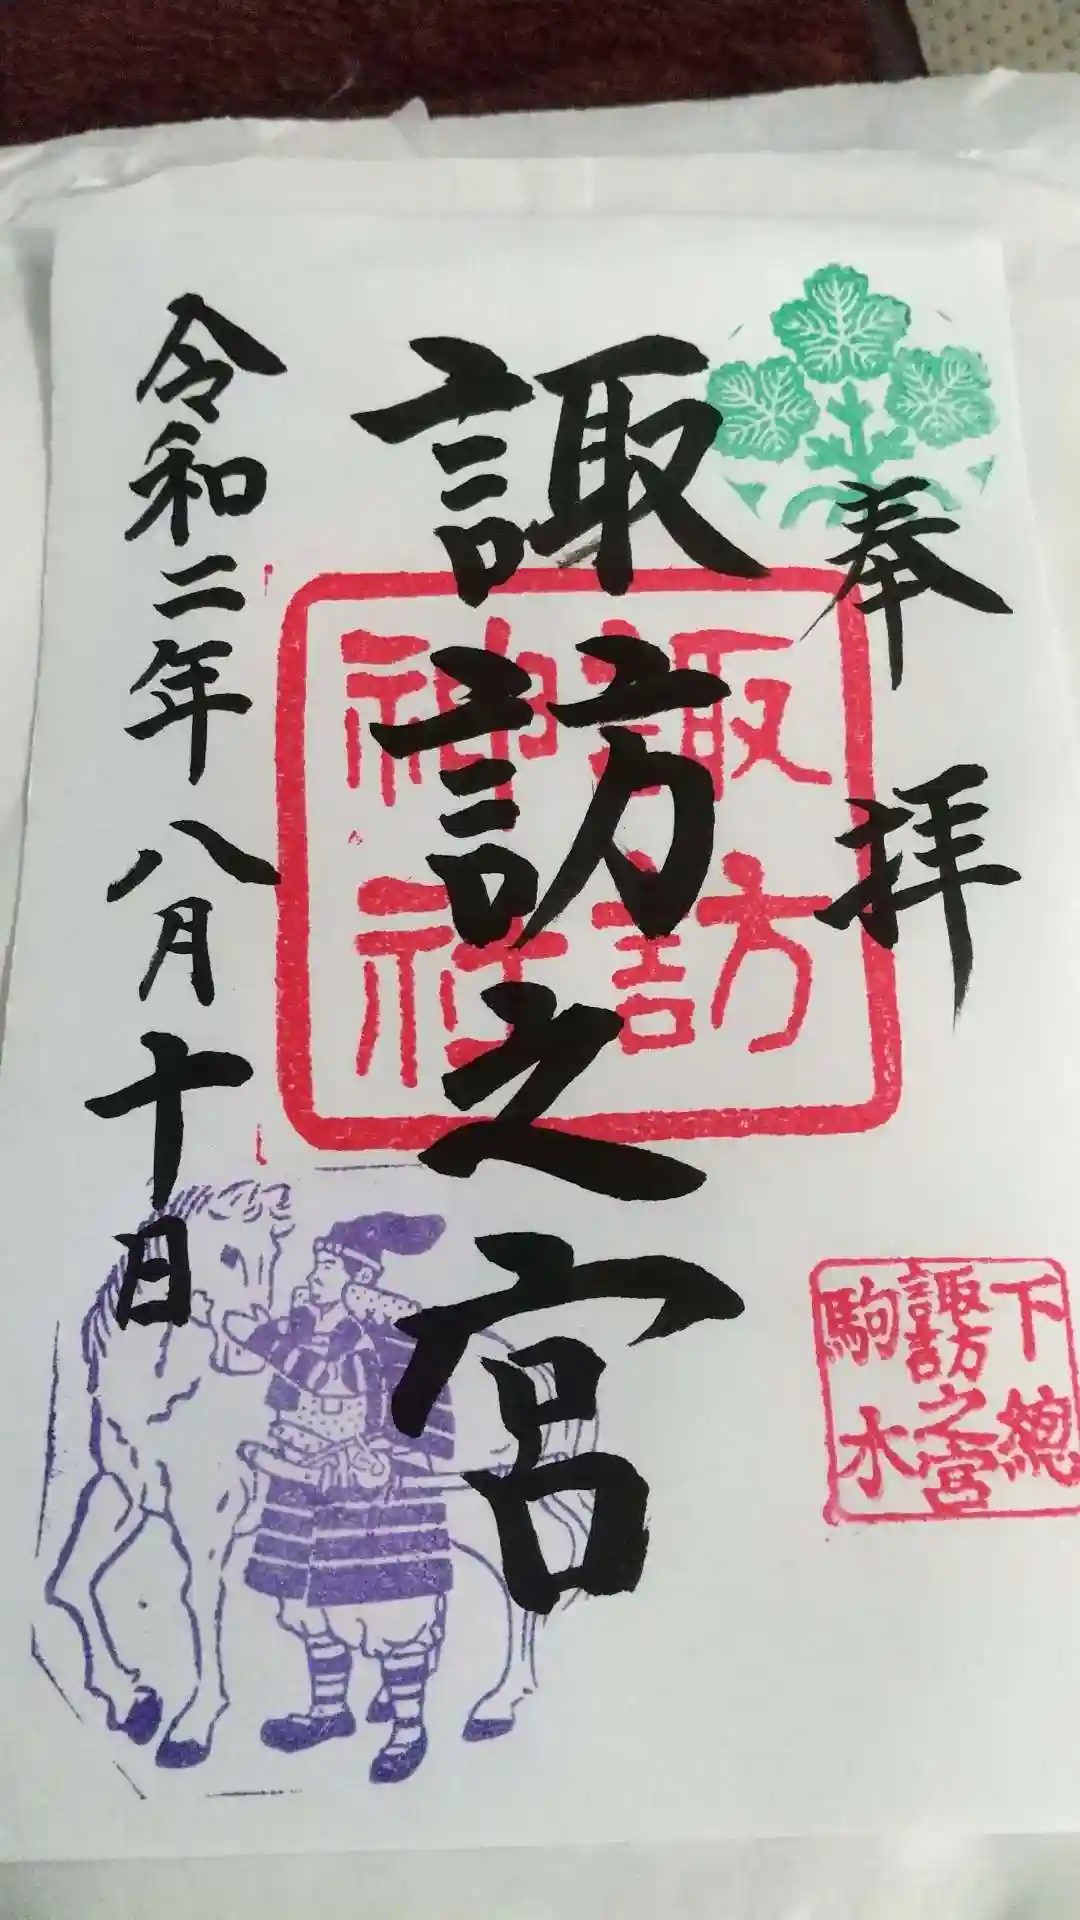 奉拝
諏訪之宮
諏訪
神社
令和二年八月十日
下總
諏訪之宮
駒木